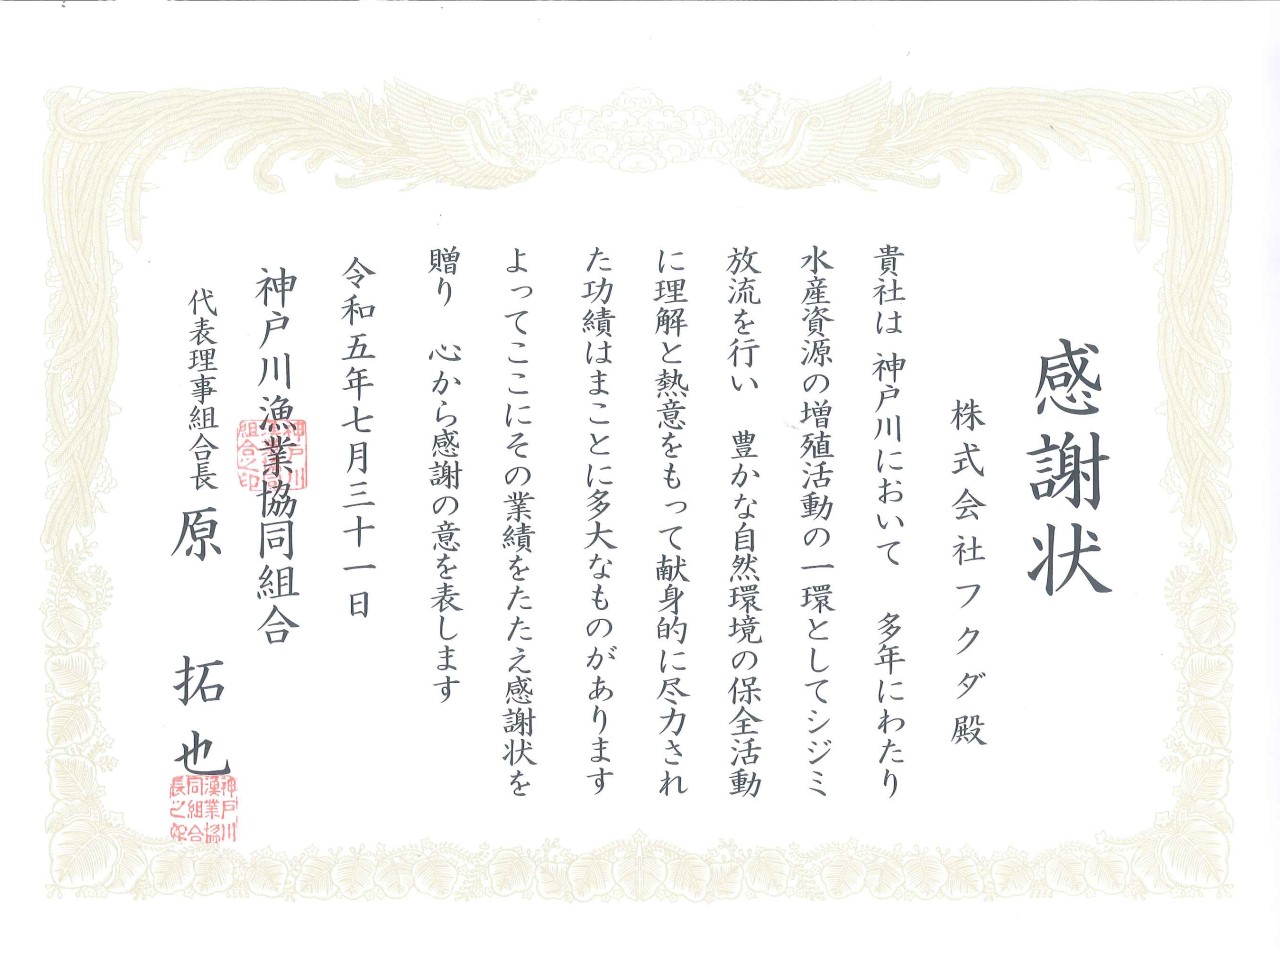 感謝状
株式会社フクダ殿
貴社は 神戸川において 多年にわたり
水産資源の増殖活動の一環としてシジミ
放流を行い 豊かな自然環境の保全活動
に理解と熱意をもって献身的に尽力され
た功績はまことに多大なものがあります
よってここにその業績をたたえ感謝状を
贈り 心から感謝の意を表します
令和五年七月三十一日
神戸川漁業協同組合
代表理事組合長 原 拓也
神戸川
組合之印
神戸川
漁業協
同組合
長之印